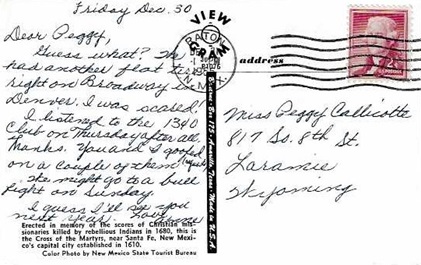 Friday Dec. 30
Dear Peggy,
Guess what? We
had another flat tire
right on Broadway in
Denver. I was scared!
I listened to the 1340
Club on Thursday after all.
Thanks. You and I goofed
on a couple of them
We might go to a bull
fight on Sunday.
I guess I'll see you
next year. Love,
Erected in memory of the scores of Christian mis-
sionaries killed by rebellious Indians in 1680, this is
the Cross of the Martyrs, near Santa Fe, New Mexi-
co's capital city established in 1610.
Color Photo by New Mexico State Tourist Bureau
VIEW
GRAM
RATON
N. MEX.
Made in U.S.A.
address
2¢
Miss Peggy Callicotte
817 So. 8th St.
Laramie
Wyoming